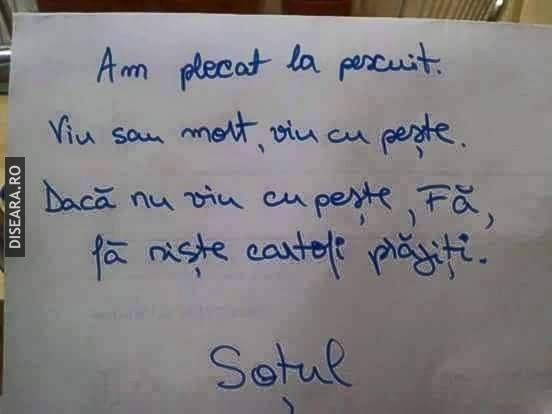 Am plecat la pescuit.
Viu sau mort, viu cu pește.
Dacă nu viu cu pește, Fă,
fă niște cartofi prăjiți.
Soțul
DISEARA.RO